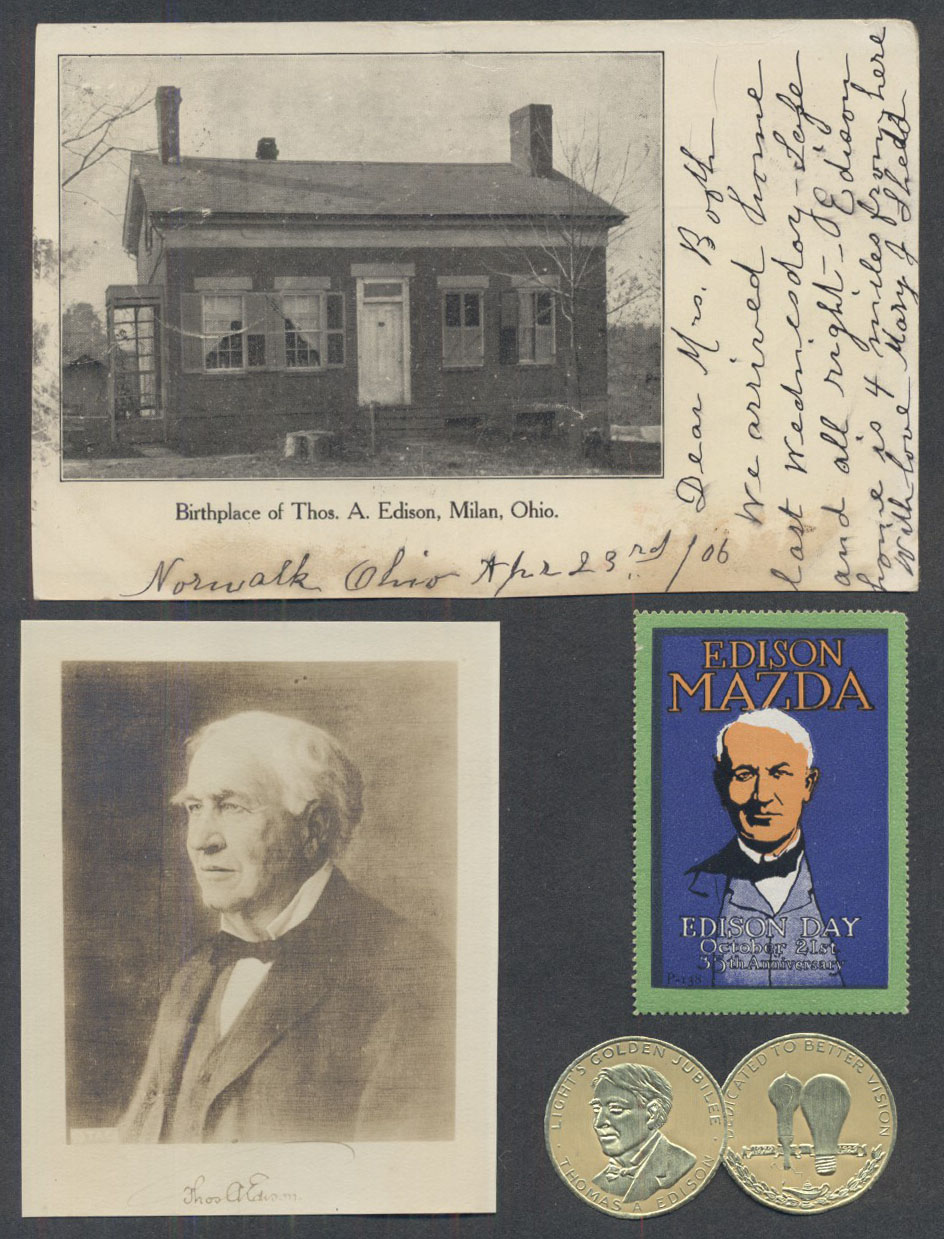 Dear Mrs. Booth
We arrived home
last Wednesday - Safe
and all right - Edison
home is 4 miles from here
With love Mary J Shedd
Birthplace of Thos. A. Edison, Milan, Ohio.
Norwalk Ohio Apr 23rd /06
Thos A Edison
EDISON
MAZDA
EDISON DAY
October 21st
35th Anniversary
P-198
LIGHT'S GOLDEN JUBILEE
THOMAS A EDISON
DEDICATED TO BETTER VISION
1879 1929